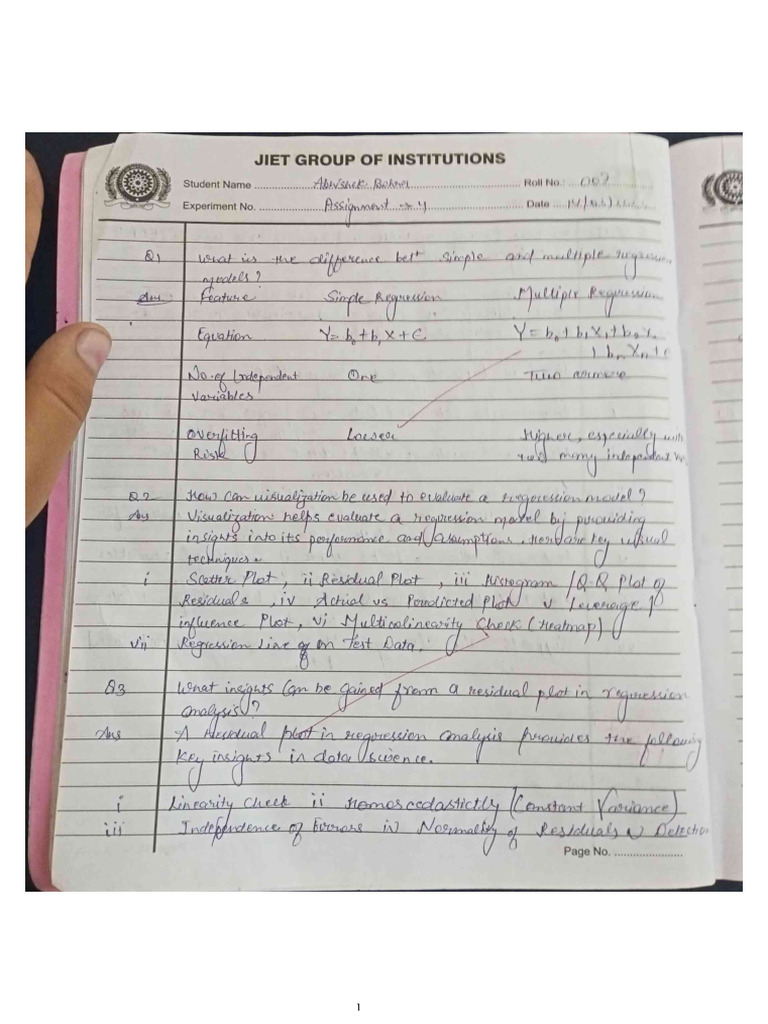 JIET GROUP OF INSTITUTIONS
Student Name Abhishek Roll No.: 007
Experiment No. Assignment → 4 Date
Q1 What is the difference betn simple and multiple regression
models?
Ans Feature Simple Regression Multiple Regression
Equation Y = b0 + b1 X + C Y = b0 + b1 X1 + b2
bn Xn + c
No. of Independent One Two or more
Variables
Overfitting Lower Higher, especially with
Risk many independent
Q2 How can visualization be used to evaluate a regression model?
Ans Visualization helps evaluate a regression model by providing
insights into its performance and assumptions. Here are key visual
techniques.
i Scatter Plot, ii Residual Plot, iii Histogram / Q-Q Plot of
Residuals, iv Actual vs Predicted Plot v Leverage /
influence Plot, vi Multicolinearity Check (Heatmap)
vii Regression Line on Test Data.
Q3 What insights can be gained from a residual plot in regression
analysis?
Ans A residual plot in regression analysis provides the following
key insights in data science.
i Linearity Check ii Homoscedastictly (Constant Variance)
iii Independence of Errors iv Normality of Residuals v Detection
Page No.
1